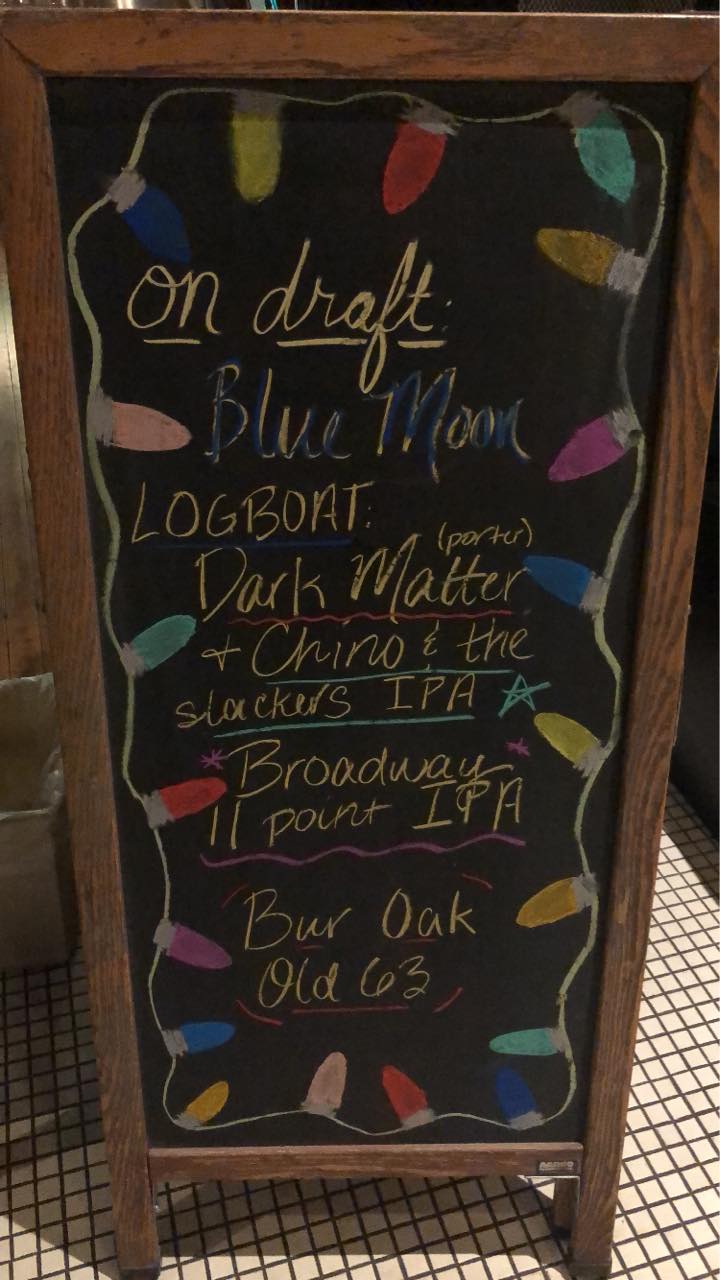 on draft:
Blue Moon
LOGBOAT:
(porter)
Dark Matter
+ Chino & the
slackers IPA
Broadway
11 point IPA
Bur Oak
Old 63